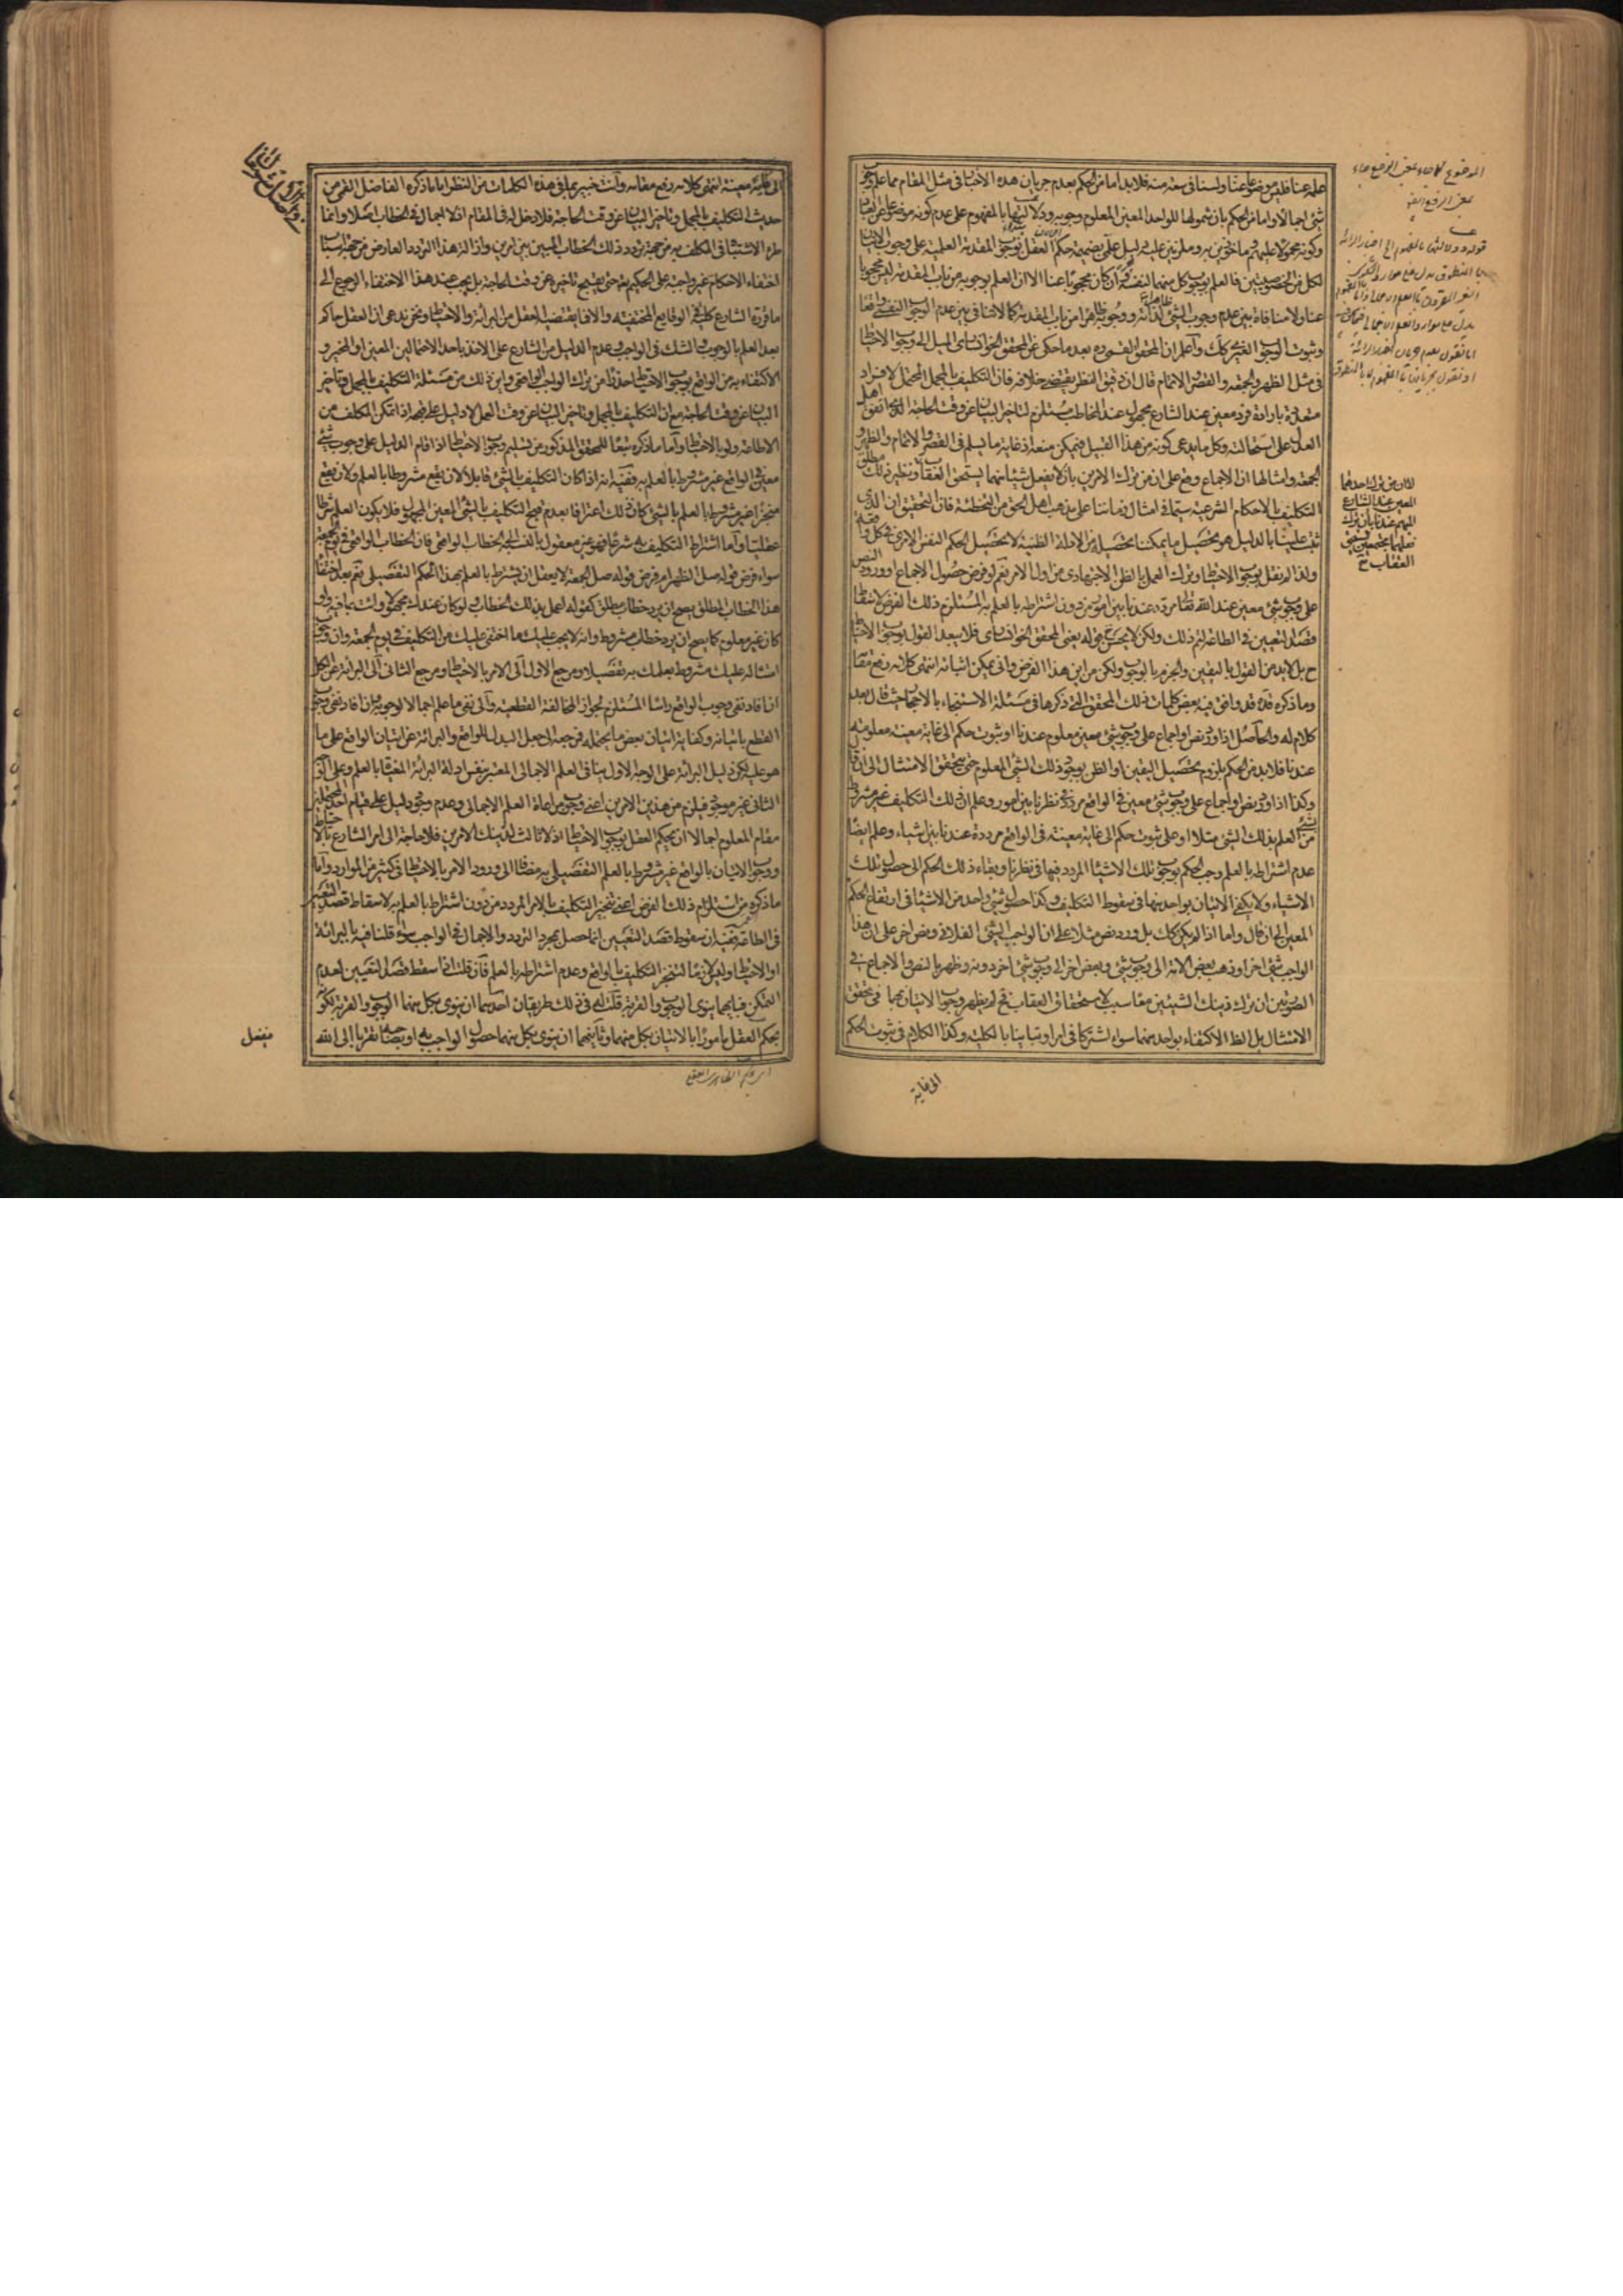 علمه عنا فليس موضوعا عنا ولسنا في سعة منه فلا بد اما من الحكم بعدم جريان هذه الاخبار في مثل المقام مما علم وجوب
شئ اجمالا واما من الحكم بان شمولها للواحد المعين المعلوم وجوبه ودلالتها بالمفهوم على عدم كونه موضوعا عن العباد
وكونه محمولا عليهم وماخوذين به وملزمين عليه دليل علمي بضميمة حكم العقل بوجوب المقدمة العلمية على وجوب الاتيان
لكل من الخصوصيتين فالعلم بوجوب كل منهما لنفسه وان كان محجوبا عنا الا ان العلم بوجوبه من باب المقدمة ليس محجوبا
عنا ولا منافاة بين عدم وجوب الشئ ظاهرا لذاته ووجوبه ظاهرا من باب المقدمة كما لا تنافي بين عدم الوجوب النفسي واقعا
وثبوت الوجوب الغيري كك واعلم ان المحقق القمي ره بعد ما حكى عن المحقق الخوانساري الميل الى وجوب الاحتياط
في مثل الظهر والجمعة والقصر والاتمام قال ان دقيق النظر يقتضي خلافه فان التكليف بالمجمل المحتمل لافراد
متعددة بارادة فرد معين عند الشارع مجهول عند المخاطب مستلزم لتاخير البيان عن وقت الحاجة الذي اتفق اهل
العدل على استحالته وكل ما يدعى كونه من هذا القبيل فيمكن منعه اذ غاية ما يسلم في القصر والاتمام والظهر و
الجمعة وامثالها ان الاجماع وقع على ان من ترك الامرين بان لا يفعل شيئا منهما يستحق العقاب ونظير ذلك مطلق
التكليف بالاحكام الشرعية سيما في امثال زماننا على مذهب اهل الحق من التخطئة فان التحقيق ان الذي
ثبت علينا بالدليل هو تحصيل ما يمكننا تحصيله من الادلة الظنية لا تحصيل الحكم النفس الامري في كل واقعة
ولذا لم نقل بوجوب الاحتياط وترك العمل بالظن الاجتهادي من اول الامر نعم لو فرض حصول الاجماع او ورود النص
على وجوب شئ معين عند الله تعالى مردد عندنا بين امور من دون اشتراطه بالعلم به المستلزم ذلك الفرض لاسقاط
قصد التعيين في الطاعة لتم ذلك ولكن لا يحسن ح قوله يعني المحقق الخوانساري فلا يبعد القول بوجوب الاحتياط
ح بل لا بد من القول باليقين والجزم بالوجوب ولكن من اين هذا الفرض واني يمكن اثباته انتهى كلامه رفع مقامه
وما ذكره قده قد وافق فيه بعض كلمات ذلك المحقق التي ذكرها في مسئلة الاستنجاء بالاحجار حيث قال بعد
كلام له والحاصل اذا ورد نص او اجماع على وجوب شئ معين معلوم عندنا او ثبوت حكم الى غاية معينة معلومة
عندنا فلا بد من الحكم بلزوم تحصيل اليقين او الظن بوجود ذلك الشئ المعلوم حتى يتحقق الامتثال الى ان قال
وكذا اذا ورد نص او اجماع على وجوب شئ معين في الواقع مردد في نظرنا بين امور وعلم ان ذلك التكليف غير مشروط
بشئ من العلم بذلك الشئ مثلا او على ثبوت حكم الى غاية معينة في الواقع مرددة عندنا بين اشياء وعلم ايضا
عدم اشتراطه بالعلم وجب الحكم بوجوب تلك الاشياء المردد فيها في نظرنا وبقاء ذلك الحكم الى حصول تلك
الاشياء ولا يكفي الاتيان بواحد منها في سقوط التكليف وكذا حصول شئ واحد من الاشياء في ارتفاع الحكم
المعين الى ان قال واما اذا لم يكن كك بل ورد نص مثلا على ان الواجب الشئ الفلاني ونص اخر على ان هذا
الواجب شئ اخر او ذهب بعض الامة الى وجوب شئ وبعض اخر الى وجوب شئ اخر دونه وظهر بالنص او الاجماع في
الصورتين ان ترك ذينك الشيئين معا سبب لاستحقاق العقاب فح لم يظهر وجوب الاتيان بهما في تحقق
الامتثال بل الظ الاكتفاء بواحد منهما سواء اشتركا في امر او تباينا بالكلية وكذا الكلام في ثبوت الحكم
الى غاية
لا ان من ترك احدهما
المعين عند الشارع
المبهم عندنا بان ترك
فعلهما مجتمعين يستحق
العقاب صح
الى غاية معينة انتهى كلامه رفع مقامه وانت خبير بما في هذه الكلمات من النظر اما ما ذكره الفاضل القمي من
حديث التكليف بالمجمل وتاخير البيان عن وقت الحاجة فلا دخل له في المقام اذ لا اجمال في الخطاب اصلا وانما
طرء الاشتباه في المكلف به من جهة تردد ذلك الخطاب المبين بين امرين وازالة هذا التردد العارض من جهة اسباب
اختفاء الاحكام غير واجبة على الحكيم تعالى حتى يقبح تاخيره عن وقت الحاجة بل يجب عند هذا الاختفاء الرجوع الى
ما قرره الشارع كلية في الوقايع المختفية والا فما يقتضيه العقل من البرائة والاحتياط ونحن ندعي ان العقل حاكم
بعد العلم بالوجوب والشك في الواجب وعدم الدليل من الشارع على الاخذ باحد الاحتمالين المعين او المخير و
الاكتفاء به من الواقع بوجوب الاحتياط حذرا من ترك الواجب الواقعي واين ذلك من مسئلة التكليف بالمجمل وتاخير
البيان عن وقت الحاجة مع ان التكليف بالمجمل وتاخير البيان عن وقت العمل لا دليل على قبحه اذا تمكن المكلف من
الاطاعة ولو بالاحتياط واما ما ذكره تبعا للمحقق المذكور من تسليم وجوب الاحتياط اذا قام الدليل على وجوب شئ
معين في الواقع غير مشروط بالعلم به ففيه انه اذا كان التكليف بالشئ قابلا لان يقع مشروطا بالعلم ولان يقع
منجزا غير مشروط بالعلم بالشئ كان ذلك اعترافا بعدم قبح التكليف بالشئ المعين المجهول فلا يكون العلم شرطا
عقليا واما اشتراط التكليف به شرعا فهو غير معقول بالنسبة الى الخطاب الواقعي فان الخطاب الواقعي في يوم الجمعة
سواء فرض قوله صل الظهر ام فرض قوله صل الجمعة لا يعقل ان يشترط بالعلم بهذا الحكم التفصيلي نعم بعد اختفاء
هذا الخطاب المطلق يصح ان يرد خطاب مطلق كقوله اعمل بذلك الخطاب ولو كان عندك مجهولا وائت بما فيه ولو
كان غير معلوم كما يصح ان يرد خطاب مشروط وانه لا يجب عليك ما اختفى عليك من التكليف في يوم الجمعة وان وجوب
امتثاله عليك مشروط بعلمك به تفصيلا ومرجع الاول الى الامر بالاحتياط ومرجع الثاني الى البرائة عن الكل
ان افاد نفي وجوب الواقع راسا المستلزم لجواز المخالفة القطعية والى نفي ما علم اجمالا بوجوبه وان افاد نفي وجوب
القطع باتيانه وكفاية اتيان بعض ما يحتمله فمرجعه الى جعل البدل للواقع والبرائة عن اتيان الواقع على ما
هو عليه لكن دليل البرائة على الوجه الاول ينافي العلم الاجمالي المعتبر بنفس ادلة البرائة المغياة بالعلم وعلى الوجه
الثاني غير موجود فيلزم من هذين الامرين اعني وجوب مراعاة العلم الاجمالي وعدم وجود دليل على قيام احد المحتملين
مقام المعلوم اجمالا ان يحكم العقل بوجوب الاحتياط اذ لا ثالث لذينك الامرين فلا حاجة الى امر الشارع بالاحتياط
ووجوب الاتيان بالواقع غير مشروط بالعلم التفصيلي به مضافا الى ورود الامر بالاحتياط في كثير من الموارد واما
ما ذكره من استلزام ذلك الفرض اعني تنجز التكليف بالامر المردد من دون اشتراط بالعلم به لاسقاط قصد التعيين
في الطاعة ففيه ان سقوط قصد التعيين انما حصل بمجرد التردد والاجمال في الواجب سواء قلنا فيه بالبرائة
او الاحتياط وليس لازما لتنجز التكليف بالواقع وعدم اشتراطه بالعلم فان قلت اذا سقط قصد التعيين لعدم
التمكن فبايهما ينوي الوجوب والقربة قلت له في ذلك طريقان احدهما ان ينوي بكل منهما الوجوب والقربة لكونه
بحكم العقل مامورا بالاتيان بكل منهما وثانيهما ان ينوي بكل منهما حصول الواجب به او بصاحبه تقربا الى الله
فيفعل